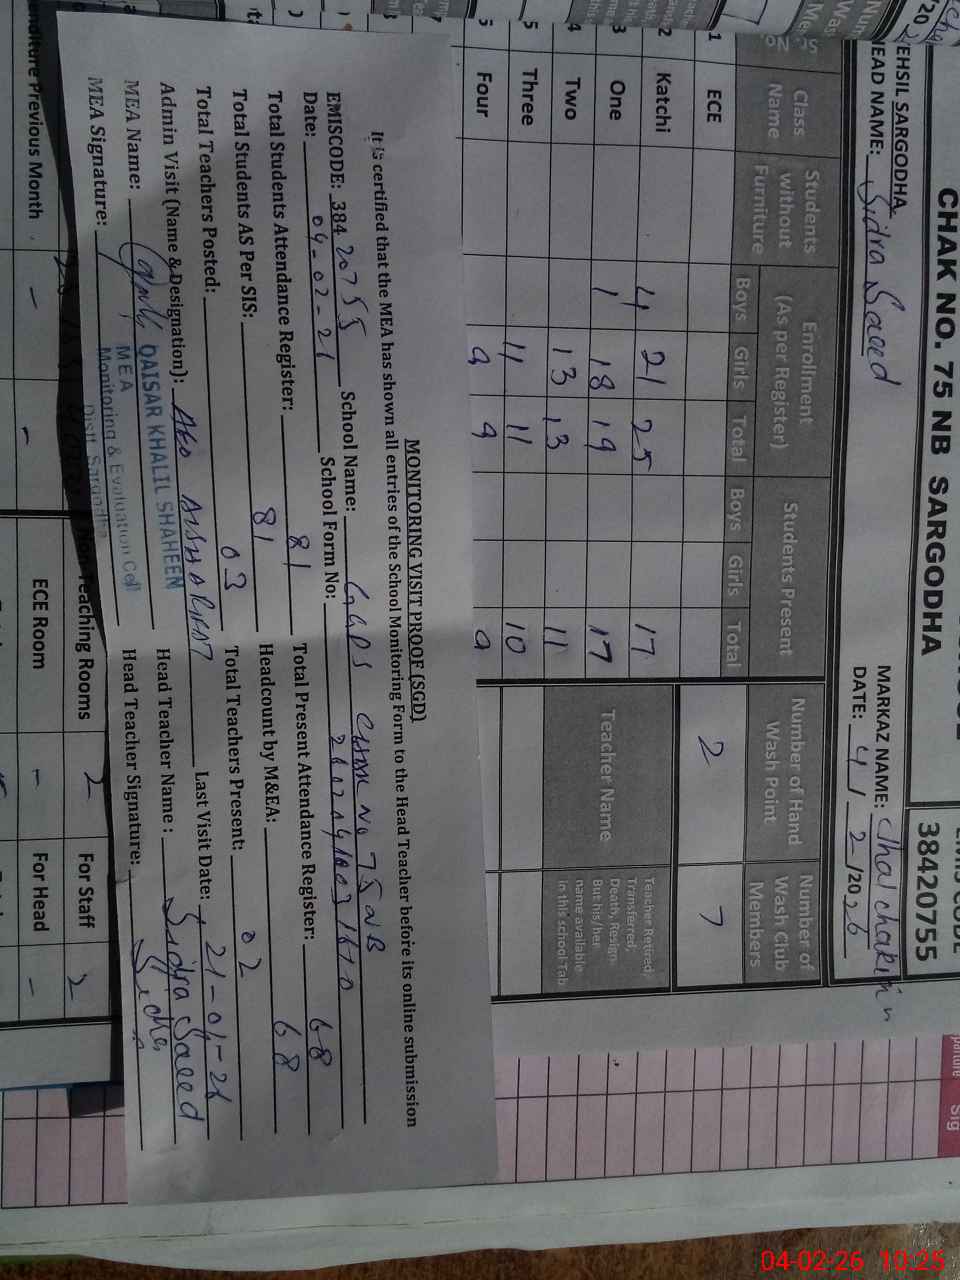 CHAK NO. 75 NB SARGODHA
38420755
TEHSIL SARGODHA
MARKAZ NAME:
HEAD NAME: Sidra Saeed
DATE: 4/2/2026
Class Name
Students without Furniture
Enrollment (As per Register)
Students Present
Number of Hand Wash Point
Number of Wash Club Members
Boys Girls Total Boys Girls Total
1 ECE 2 7
2 Katchi 4 21 25 17
3 One 1 18 19 17
4 Two 13 13 11
5 Three 11 11 10
Four 9 9 9
Teacher Name
Teacher Retired, Transferred, Death, Resign But his/her name available in this school Tab
MONITORING VISIT PROOF (SGD)
It is certified that the MEA has shown all entries of the School Monitoring Form to the Head Teacher before its online submission
EMISCODE: 38420755 School Name: GGPS Chak No 75 NB
Date: 04-02-26 School Form No:
Total Students Attendance Register: 81 Total Present Attendance Register: 68
Total Students AS Per SIS: 81 Headcount by M&EA: 68
Total Teachers Posted: 03 Total Teachers Present: 02
Admin Visit (Name & Designation): Last Visit Date: 21-01-26
MEA Name: Head Teacher Name : Sidra Saeed
MEA Signature: Head Teacher Signature: Sidra
QAISAR KHALIL SHAHEEN
MEA
Monitoring & Evaluation Cell
Distt. Sargodha
Teaching Rooms 2 For Staff 2
Previous Month - - ECE Room - For Head -
04-02-26 10:25